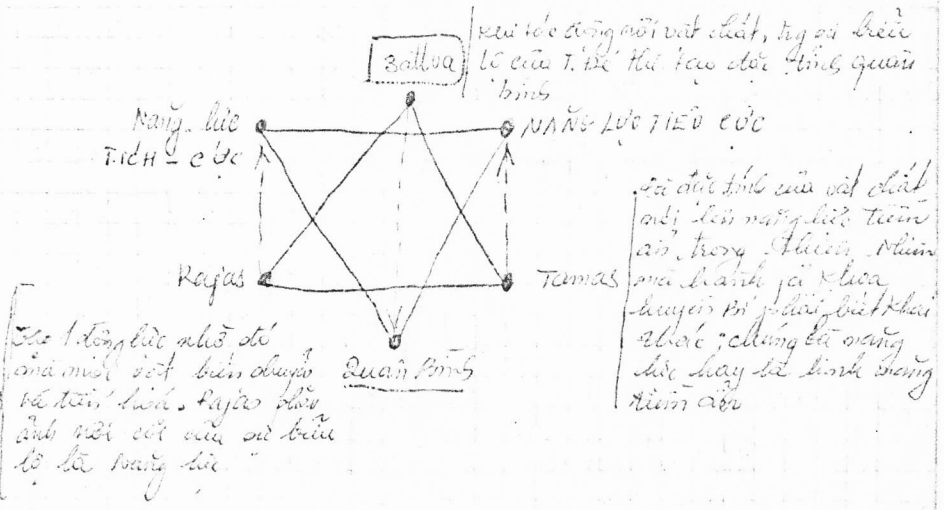 Sattva
Khi tác động với vật chất, sự biểu
lộ của T. thể tạo đức tính quân
bình
Năng lực
TÍCH - CỰC
NĂNG LỰC TIÊU CỰC
Rajas
Tamas
là đặc tính của vật chất
nói lên năng lực tiềm
ẩn trong Thiên Nhiên
mà hành giả khoa
huyền bí phải biết khai
thác; chúng là năng
lực hay là linh
tiềm ẩn
1 động lực nhờ đó
mà mọi vật biến chuyển
và tiến hoá. Rajas phản
ánh nơi sự biểu
lộ là năng lực
Quân Bình